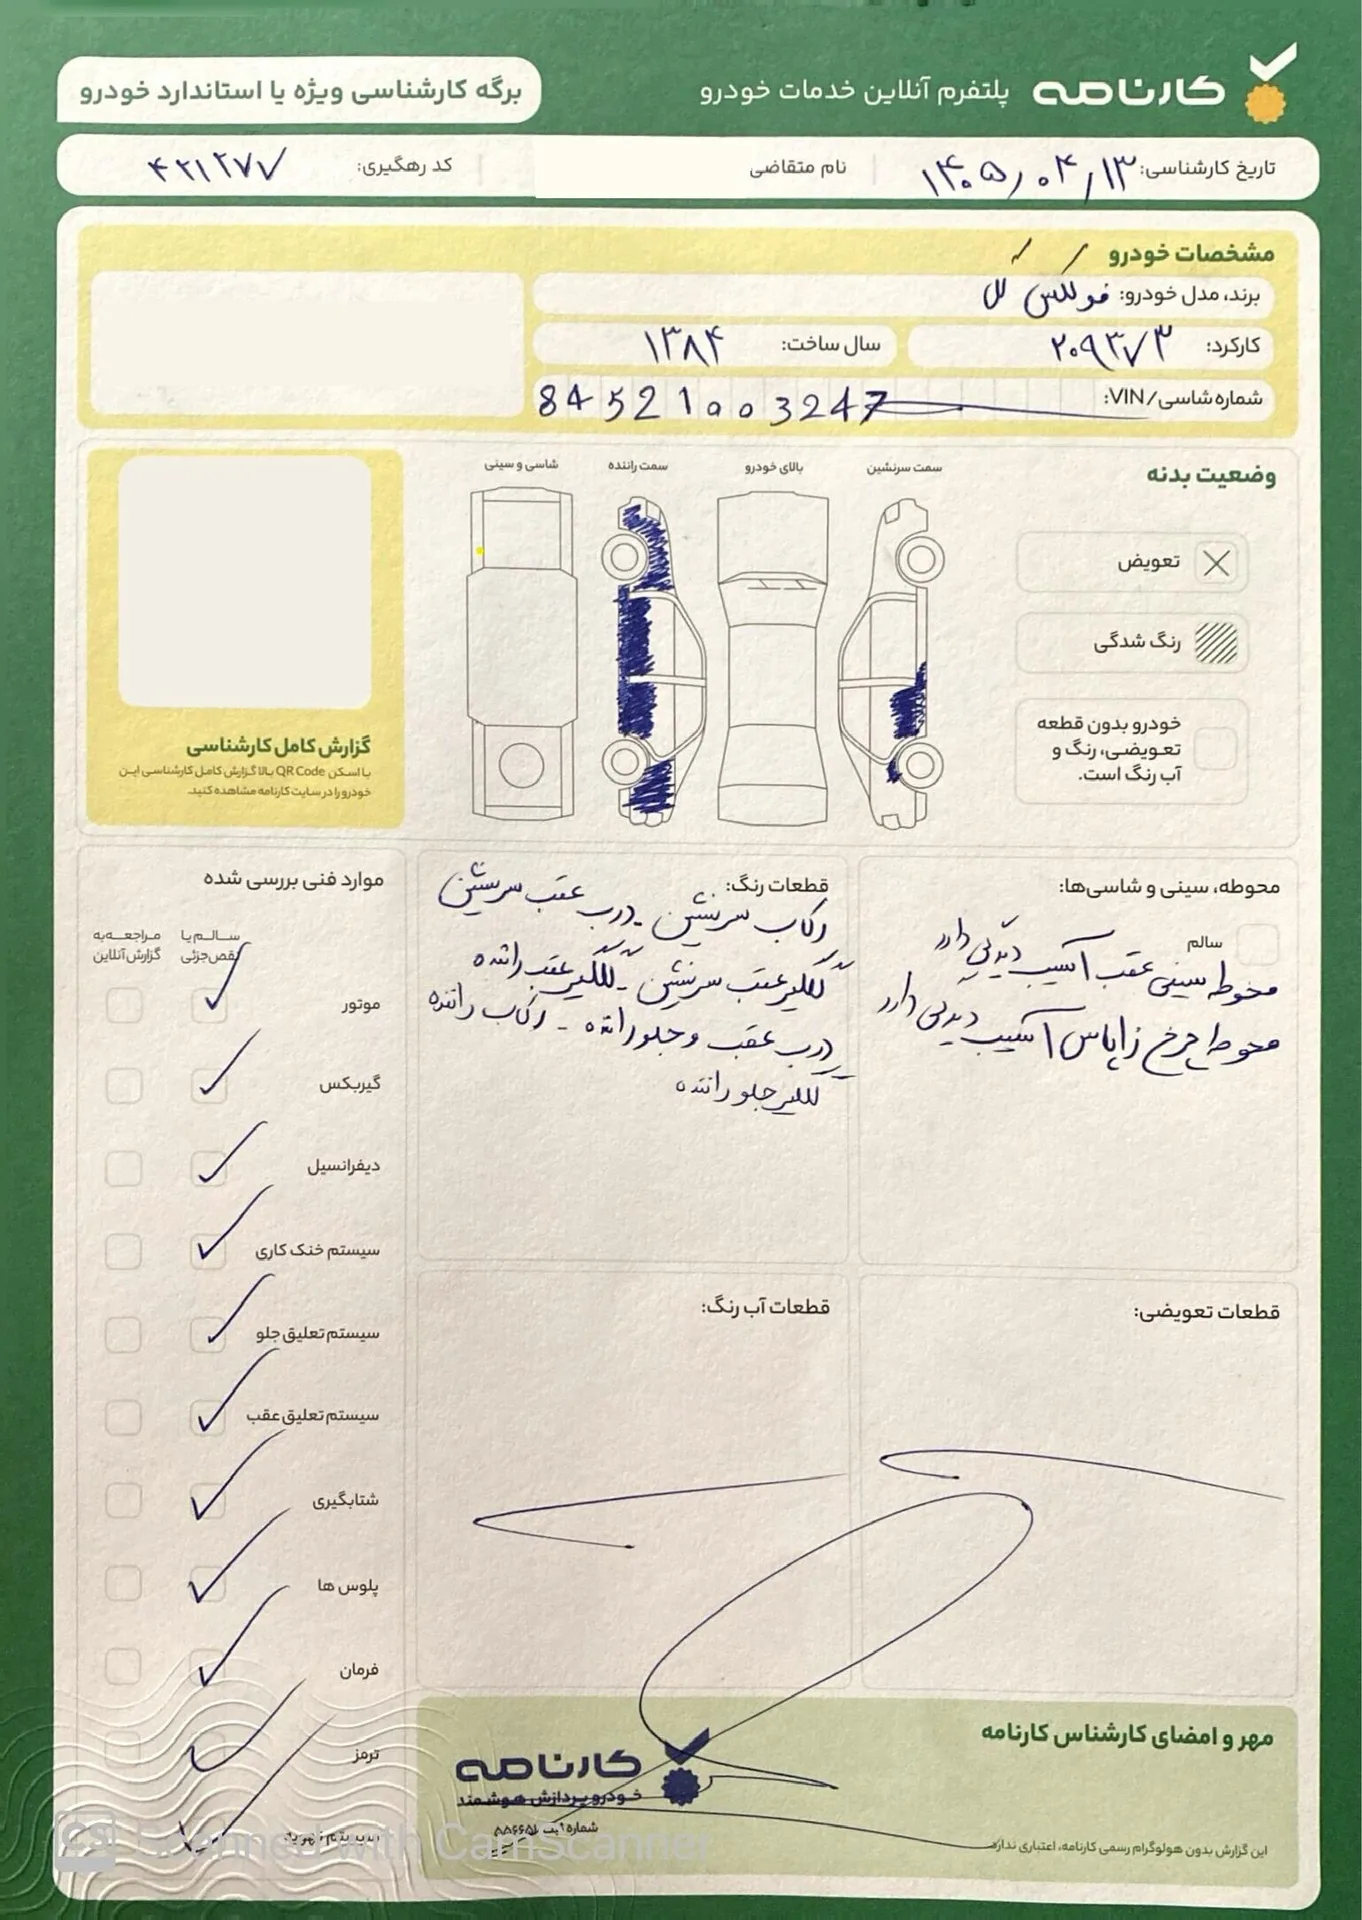 کارنامه
پلتفرم آنلاین خدمات خودرو
برگه کارشناسی ویژه یا استاندارد خودرو
تاریخ کارشناسی: ۱۴۰۵/۰۴/۱۳
نام متقاضی
کد رهگیری: ۴۲۱۲۷۷
مشخصات خودرو
برند، مدل خودرو: فولکس گل
کارکرد: ۲۰۹۳۷۳
سال ساخت: ۱۳۸۴
شماره شاسی/VIN: 84521003247
وضعیت بدنه
سمت سرنشین
بالای خودرو
سمت راننده
شاسی و سینی
تعویض
رنگ شدگی
خودرو بدون قطعه
تعویضی، رنگ و
آب رنگ است.
گزارش کامل کارشناسی
با اسکن QR Code بالا گزارش کامل کارشناسی این
خودرو را در سایت کارنامه مشاهده کنید.
محوطه، سینی و شاسی‌ها:
سالم
محوطه سینی عقب آسیب دیدگی دارد
محوطه چرخ زاپاس آسیب دیدگی دارد
قطعات رنگ:
رکاب سرنشین - درب عقب سرنشین
گلگیر عقب سرنشین - گلگیر عقب راننده
درب عقب و جلو راننده - رکاب راننده
گلگیر جلو راننده
موارد فنی بررسی شده
سالم یا
نقص جزئی
مراجعه به
گزارش آنلاین
موتور
گیربکس
دیفرانسیل
سیستم خنک کاری
سیستم تعلیق جلو
سیستم تعلیق عقب
شتابگیری
پلوس ها
فرمان
ترمز
سیستم تهویه
قطعات تعویضی:
قطعات آب رنگ:
مهر و امضای کارشناس کارنامه
کارنامه
خودرو پردازش هوشمند
شماره ثبت
این گزارش بدون هولوگرام رسمی کارنامه، اعتباری ندارد.
CS Scanned with CamScanner